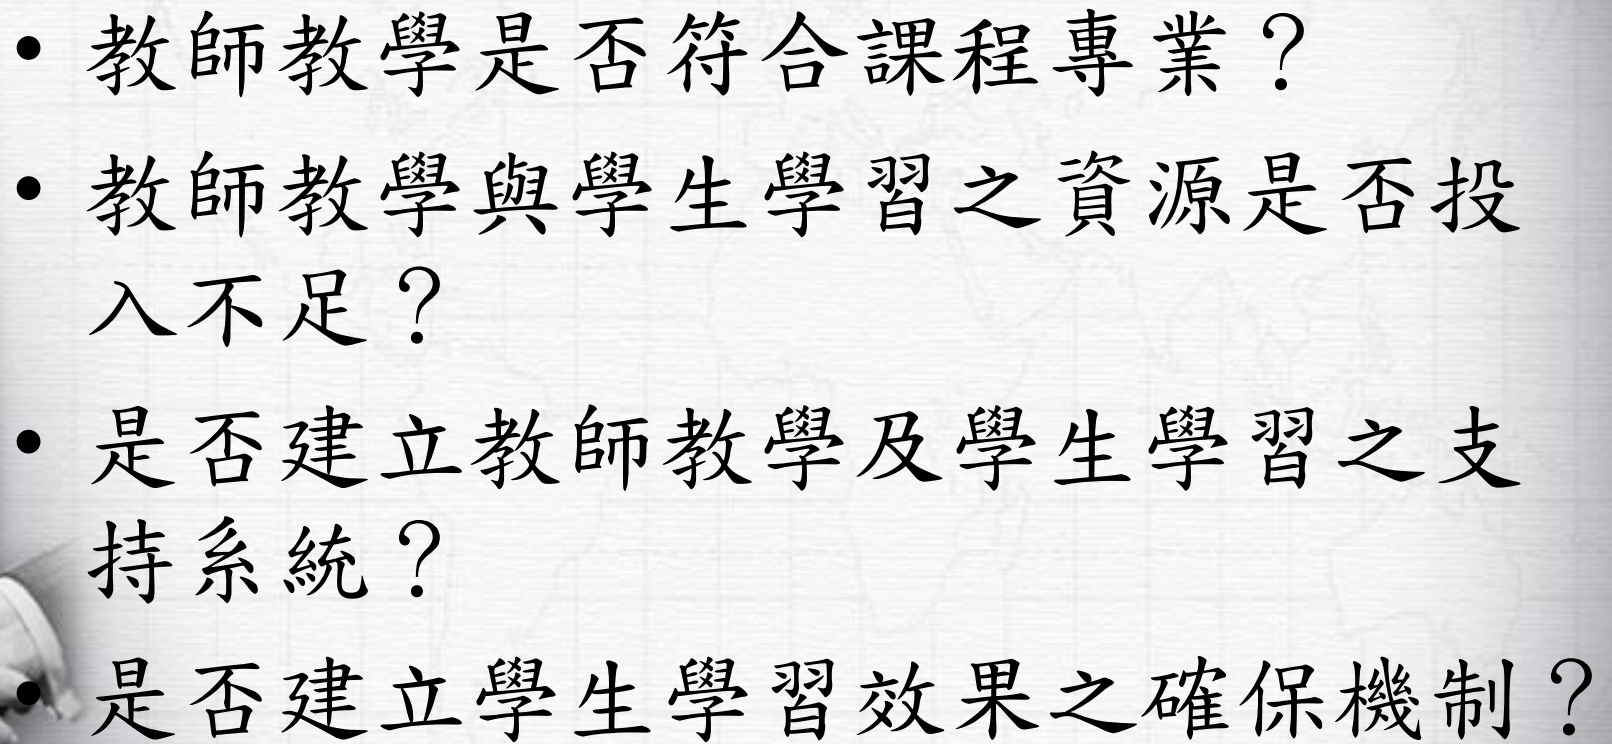 • 教師教學是否符合課程專業？
• 教師教學與學生學習之資源是否投
入不足？
• 是否建立教師教學及學生學習之支
持系統？
• 是否建立學生學習效果之確保機制？